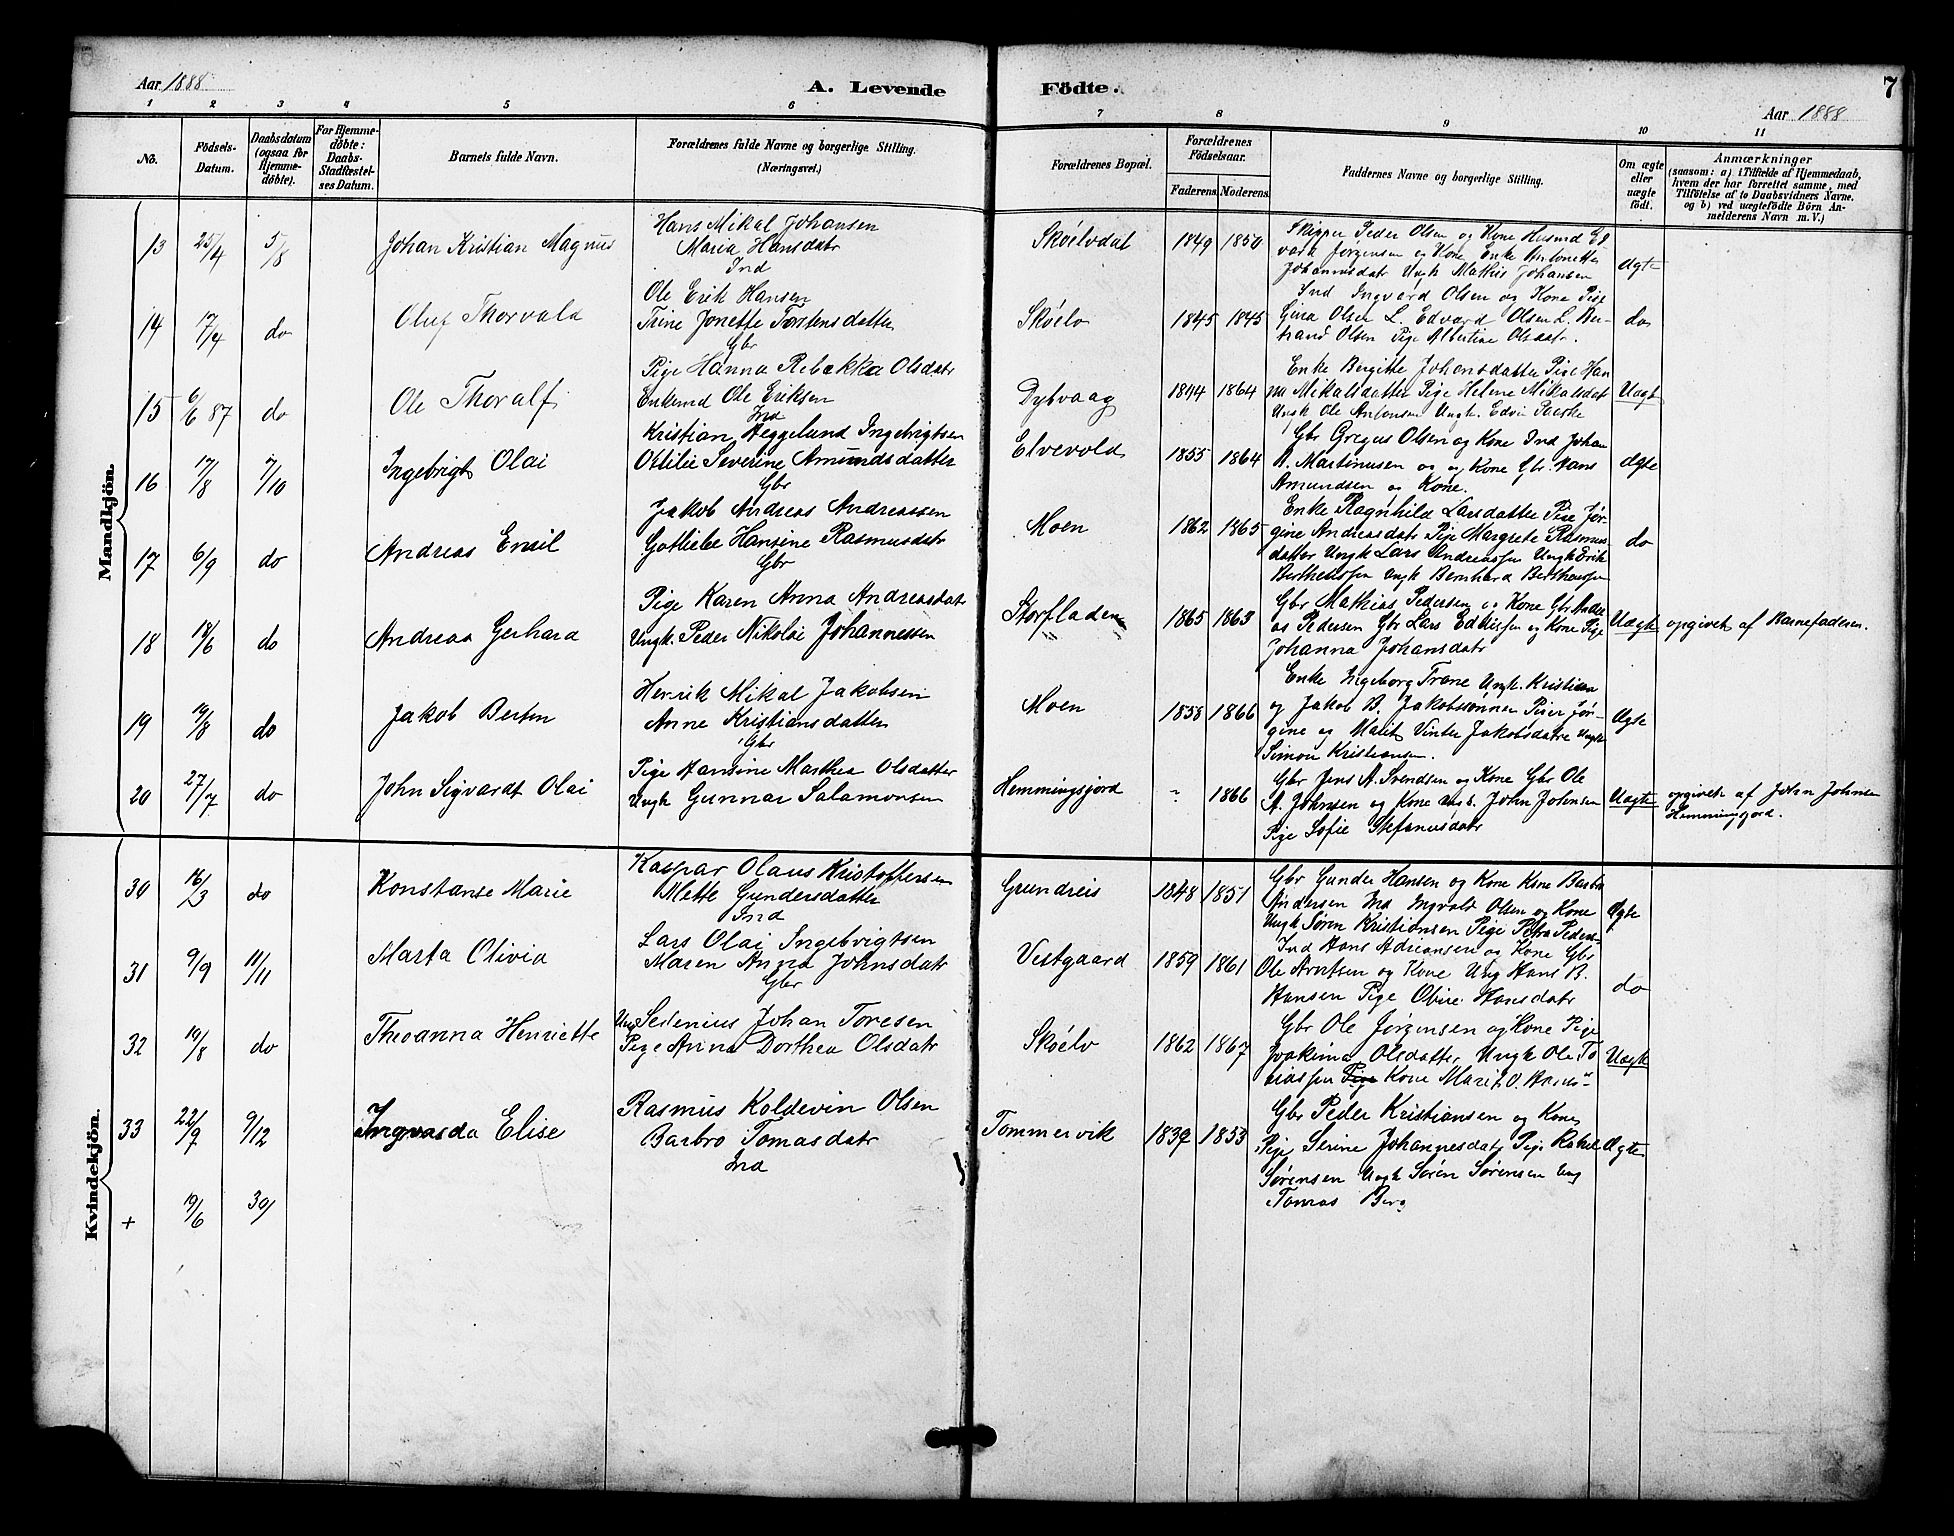 Aar 1888 A. Levende Födte. 7
Aar 1888
1 2 3 4 5 6 7 8 9 10 11
No. Födsels-Datum. Daabsdatum (ogsaa for Hjemmedöbte). For Hjemmedöbte: Daabs-Stadfæstelses Datum. Barnets fulde Navn. Forældrenes fulde Navne og borgerlige Stilling. (Næringsvei.) Forældrenes Bopæl. Forældrenes Födselsaar. Faderens Moderens Faddernes Navne og borgerlige Stilling. Om ægte eller uægte födt. Anmærkninger (saasom: a) i Tilfælde af Hjemmedaab, hvem der har forrettet samme, med Tilföielse af to Daabsvidners Navne. og b) ved uægtefödte Börn Anmelderens Navn m. V.)
Mandkjön.
13 25/4 5/8 Johan Kristian Magnus
Hans Mikal Johansen
Maria Hansdatr
Ind
Skøelvdal 1849 1850
Skipper Peder Olsen og Kone Husmd Ed
vard Jørgensen og Kone Enke Antonette
Johannisdatr Ungk Mathis Johansen
Ægte
14 17/4 do Oluf Thorvald
Ole Erik Hansen
Trine Jonette Torstensdatter
Gbr
Skøelv 1845 1845
Ind Ingvard Olsen og Kone Pige
Gina Olsen L. Edvard Olsen L. Ber-
trand Olsen Pige Albertine Olsdatr.
do
15 6/6 87 do Ole Thoralf
Pige Hanna Rebekka Olsdatr
Enkemd Ole Eriksen
Ind
Dybvaag 1844 1864
Enke Bergitte Johansdatter Pige Han
na Mikalsdatter Pige Helene Mikalsdat
Ungk Ole Antonsen Ungk. Edvin
Uægt
16 17/8 7/10 Ingebrigt Olai
Kristian Heggelund Ingebrigtsen
Ottilie Severine Amundsdatter
Gbr
Elvevold 1855 1864
Gbr Gregus Olsen og Kone Ind Johan
A. Martinusen og Kone Gbr Hans
Amundsen og Kone.
ægte
17 6/9 do Andreas Emil
Jakob Andreas Andreassen
Gotliebe Hansine Rasmusdatr
Gbr
Moen 1862 1865
Enke Ragnhild Larsdatter Pige Jør-
gine Andreasdatr Pige Margrete Rasmus-
datter Ungk Lars Andreassen Ungk Erik
Bertheussen Ungk Bernhard Bertheussen
do
18 18/6 do Andreas Gerhard
Pige Karen Anna Andreasdatr
Ungk. Peder Nikolai Johannessen
Storfladen 1865 1863
Gbr Mathias Pedersen og Kone Gbr Andre
as Pedersen Gbr Lars og Kone Pige
Johanna Johansdatr
Uægte opgivet af Barnefaderen.
19 19/8 do Jakob Bertin
Henrik Mikal Jakobsen
Anne Kristiansdatter
Gbr
Moen 1858 1866
Enke Ingeborg Trane Ungk. Kristian
og Jakob B. Jakobssønner Piger Jør-
gine og Marit Vinter Jakobsdatre Ungk
Simon Kristiansen.
Ægte
20 27/7 do John Sigvardt Olai
Pige Hansine Marthea Olsdatter
Ungk Gunnar Salamonsen
Hemmingsjord " 1866
Gbr Jens A. Svendsen og Kone Gbr Ole
A. Johnsen og Kone Ungk. John Johnsen
Pige Sofie Stefanusdatr
Uægte opgivet af John Johnsen
Hemmingjord.
Kvindekjön.
30 16/3 do Konstanse Marie
Kaspar Olaus Kristoffersen
Mette Gundersdatter
Ind
Grundreis 1848 1851
Gbr Gunder Hansen og Kone Kone Barbro
Andersen Ind Ingvald Olsen og Kone
Ungk Søren Kristiansen Pige Petra
Ægte
31 9/9 11/11 Marta Olivia
Lars Olai Ingebrigtsen
Maren Anna Johnsdatr
Gbr
Vestgaard 1859 1861
Ind Hans Adriansen og Kone Gbr
Ole Arntsen og Kone Ung Hans B.
Hansen Pige Oline Hansdatr
do
32 19/8 do Theoanna Henriette
Ung Sedenius Johan Toresen
Pige Anna Dorthea Olsdatr
Skøelv 1862 1867
Gbr Ole Jørgensen og Kone Pige
Joakima Olsdatter Ungk Ole To
biassen Pige Kone Marit O.
Uægte
33 22/9 9/12 Ingvarda Elise
Rasmus Koldevin Olsen
Barbro Tomasdatr
Ind
Tommervik 1839 1853
Gbr Peder Kristiansen og Kone
Pige Serine Johannesdatr Pige Rakel
Sørensen Ungk Søren Sørensen Ung
Tomas Berg
Ægte
+ 19/6 30/